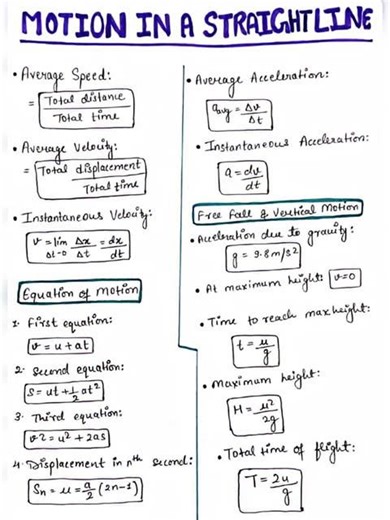 MOTION IN A STRAIGHTLINE
• Average Speed:
= Total distance / Total time
• Average Velocity:
= Total displacement / Total time
• Instantaneous Velocity:
v = lim Δt→0 Δx/Δt = dx/dt
Equation of Motion
1. First equation:
v = u + at
2. Second equation:
S = ut + 1/2 at²
3. Third equation:
v2 = u² + 2as
4. Displacement in nth second:
Sn = u = a/2 (2n-1)
• Average Acceleration:
aavg = Δv/Δt
• Instantaneous Acceleration:
a = dv/dt
Free Fall & Vertical Motion
• Acceleration due to gravity:
g = 9.8m/s2
• At maximum height: v=0
• Time to reach max height:
t = u/g
• Maximum height:
H = u²/2g
• Total time of flight:
T = 2u/g